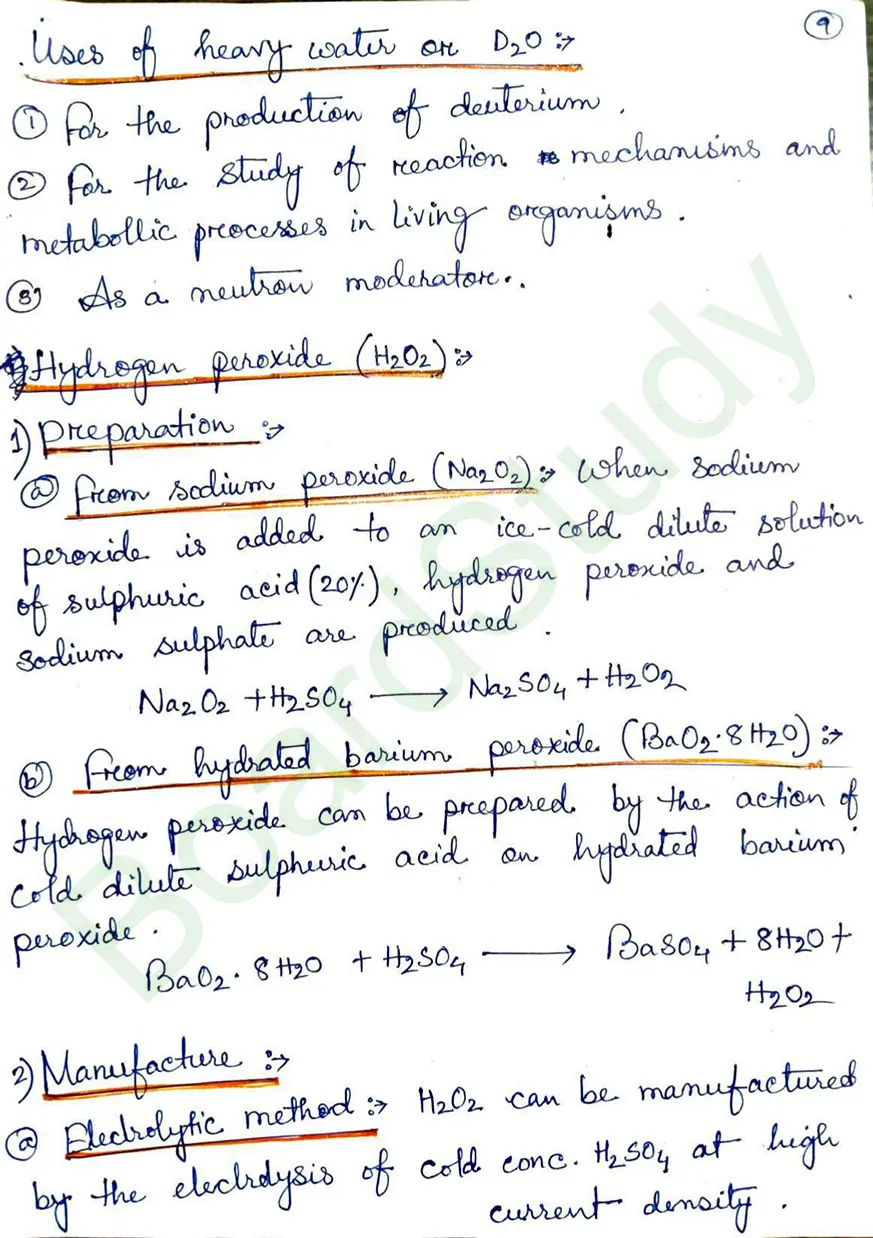 9
Uses of heavy water or D2O :→
① For the production of deuterium.
② For the study of reaction mechanisms and
metabollic processes in living organisms.
③ As a neutron moderator..
Hydrogen peroxide (H2O2) :→
1) Preparation :→
ⓐ From sodium peroxide (Na2O2) :→ When sodium
peroxide is added to an ice-cold dilute solution
of sulphuric acid (20%), hydrogen peroxide and
sodium sulphate are produced.
Na2O2 + H2SO4 ⟶ Na2SO4 + H2O2
ⓑ From hydrated barium peroxide (BaO2·8H2O) :→
Hydrogen peroxide can be prepared by the action of
cold dilute sulphuric acid on hydrated barium
peroxide.
BaO2·8H2O + H2SO4 ⟶ BaSO4 + 8H2O +
H2O2
2) Manufacture :→
ⓐ Electrolytic method :→ H2O2 can be manufactured
by the electrolysis of cold conc. H2SO4 at high
current density.
BoardStudy